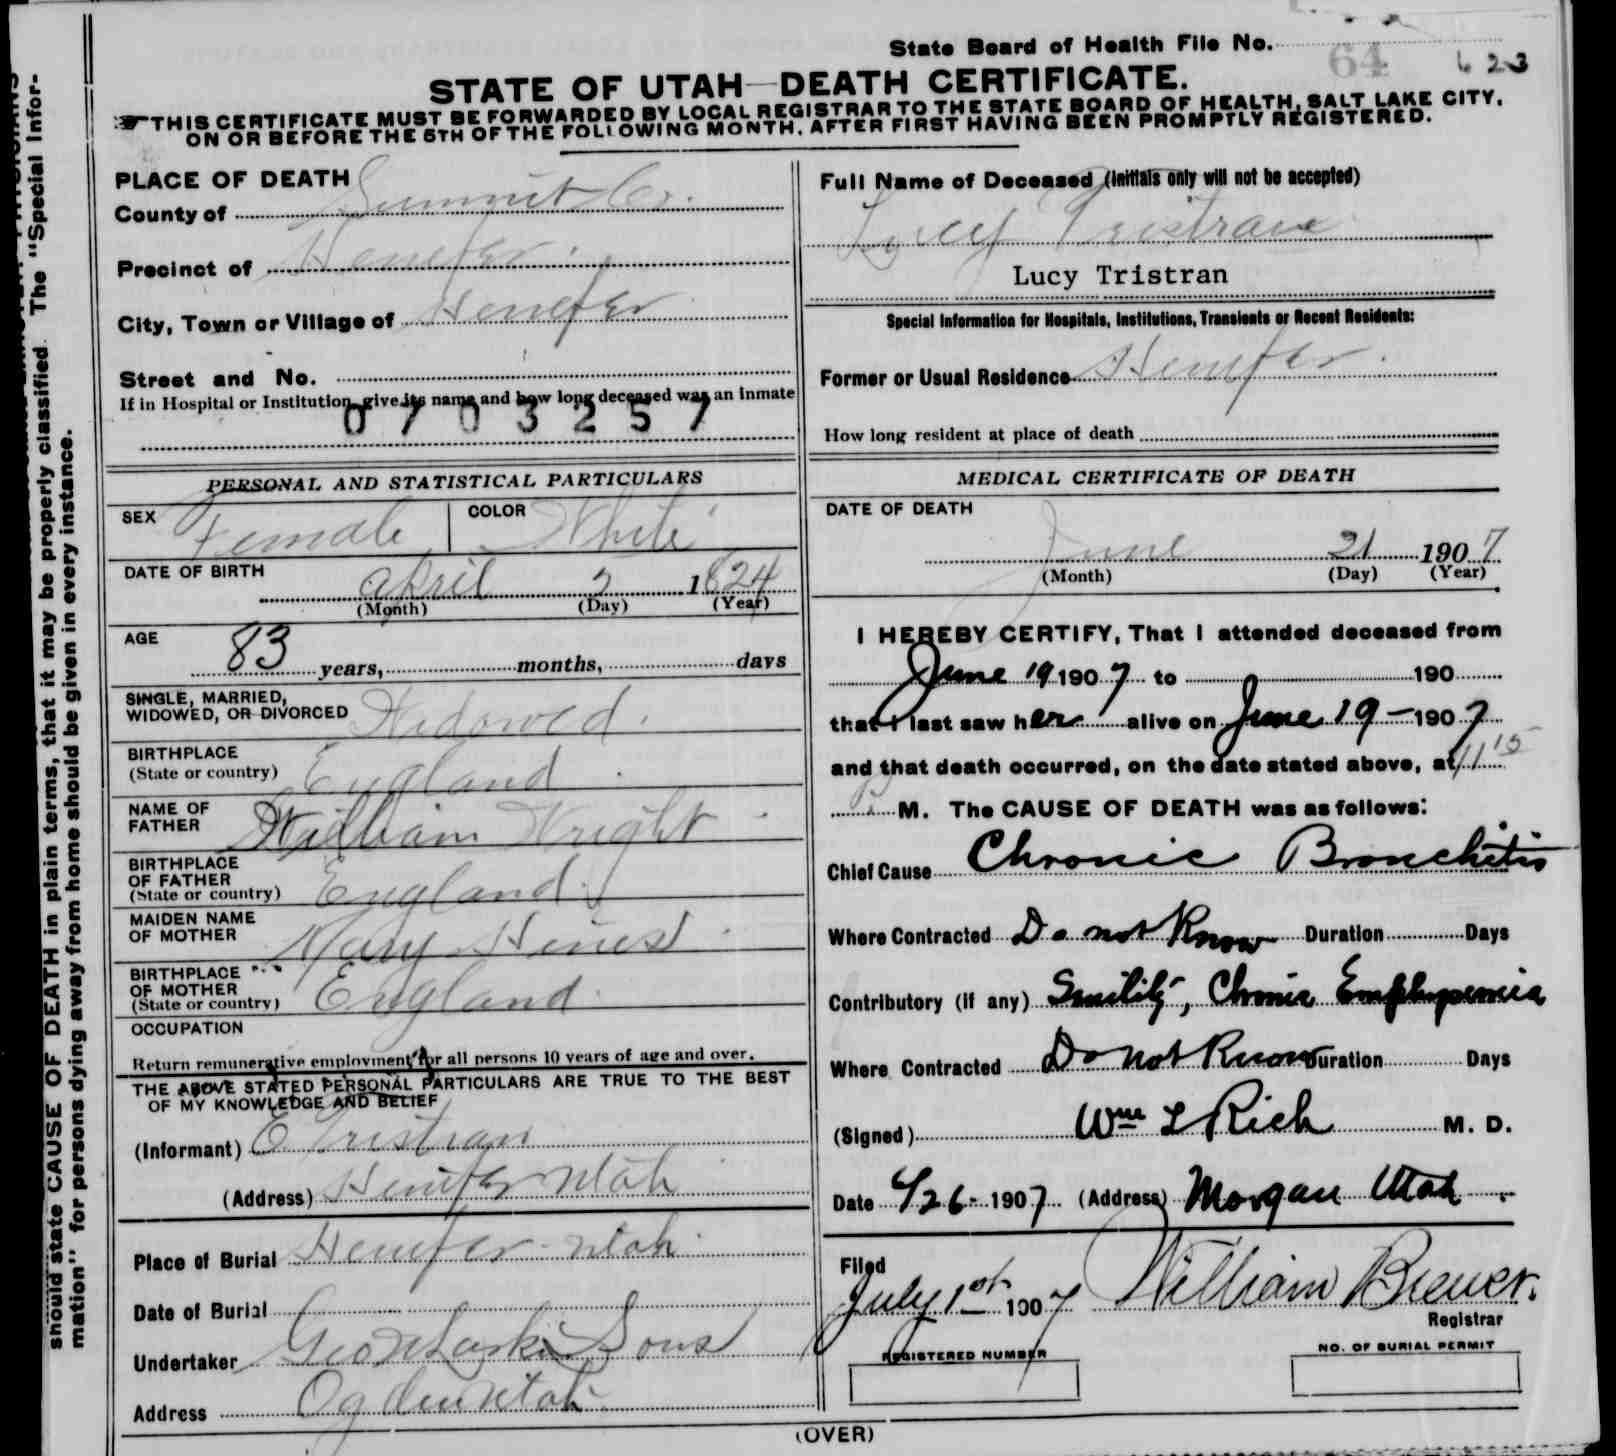 State Board of Health File No. 64 623
STATE OF UTAH—DEATH CERTIFICATE.
THIS CERTIFICATE MUST BE FORWARDED BY LOCAL REGISTRAR TO THE STATE BOARD OF HEALTH, SALT LAKE CITY,
ON OR BEFORE THE 5TH OF THE FOLLOWING MONTH, AFTER FIRST HAVING BEEN PROMPTLY REGISTERED.
should state CAUSE OF DEATH in plain terms, that it may be properly classified. The "Special Infor-
mation" for persons dying away from home should be given in every instance.
PLACE OF DEATH
County of Summit Co.
Precinct of Henefer.
City, Town or Village of Henefer
Street and No.
If in Hospital or Institution, give its name and how long deceased was an inmate
0703257
Full Name of Deceased (Initials only will not be accepted)
Lucy Tristran
Lucy Tristran
Special Information for Hospitals, Institutions, Transients or Recent Residents:
Former or Usual Residence Henefer.
How long resident at place of death
PERSONAL AND STATISTICAL PARTICULARS
SEX Female COLOR White
DATE OF BIRTH
April 2 1824
(Month) (Day) (Year)
AGE
83 years, months, days
SINGLE, MARRIED,
WIDOWED, OR DIVORCED Widowed.
BIRTHPLACE
(State or country) England
NAME OF
FATHER William Wright
BIRTHPLACE
OF FATHER
(State or country) England
MAIDEN NAME
OF MOTHER Mary
BIRTHPLACE
OF MOTHER
(State or country) England.
OCCUPATION
Return remunerative employment for all persons 10 years of age and over.
THE ABOVE STATED PERSONAL PARTICULARS ARE TRUE TO THE BEST
OF MY KNOWLEDGE AND BELIEF
(Informant) E Tristran
(Address) Henefer Utah
Place of Burial Henefer Utah.
Date of Burial
Undertaker Geo Sons
Address Ogden Utah
MEDICAL CERTIFICATE OF DEATH
DATE OF DEATH
June 21 1907
(Month) (Day) (Year)
I HEREBY CERTIFY, That I attended deceased from
June 19 1907 to 190
that I last saw her alive on June 19 - 1907
and that death occurred, on the date stated above, at 11 15
M. The CAUSE OF DEATH was as follows:
Chief Cause Chronic Bronchitis
Where Contracted Do not Know Duration Days
Contributory (if any) Senility, Chronic Emphysemia
Where Contracted Do not Know Duration Days
(Signed) Wm L Rich M. D.
Date 6/26- 1907 (Address) Morgan Utah.
Filed
July 1st 1907 William Brewer.
Registrar
REGISTERED NUMBER
NO. OF BURIAL PERMIT
(OVER)